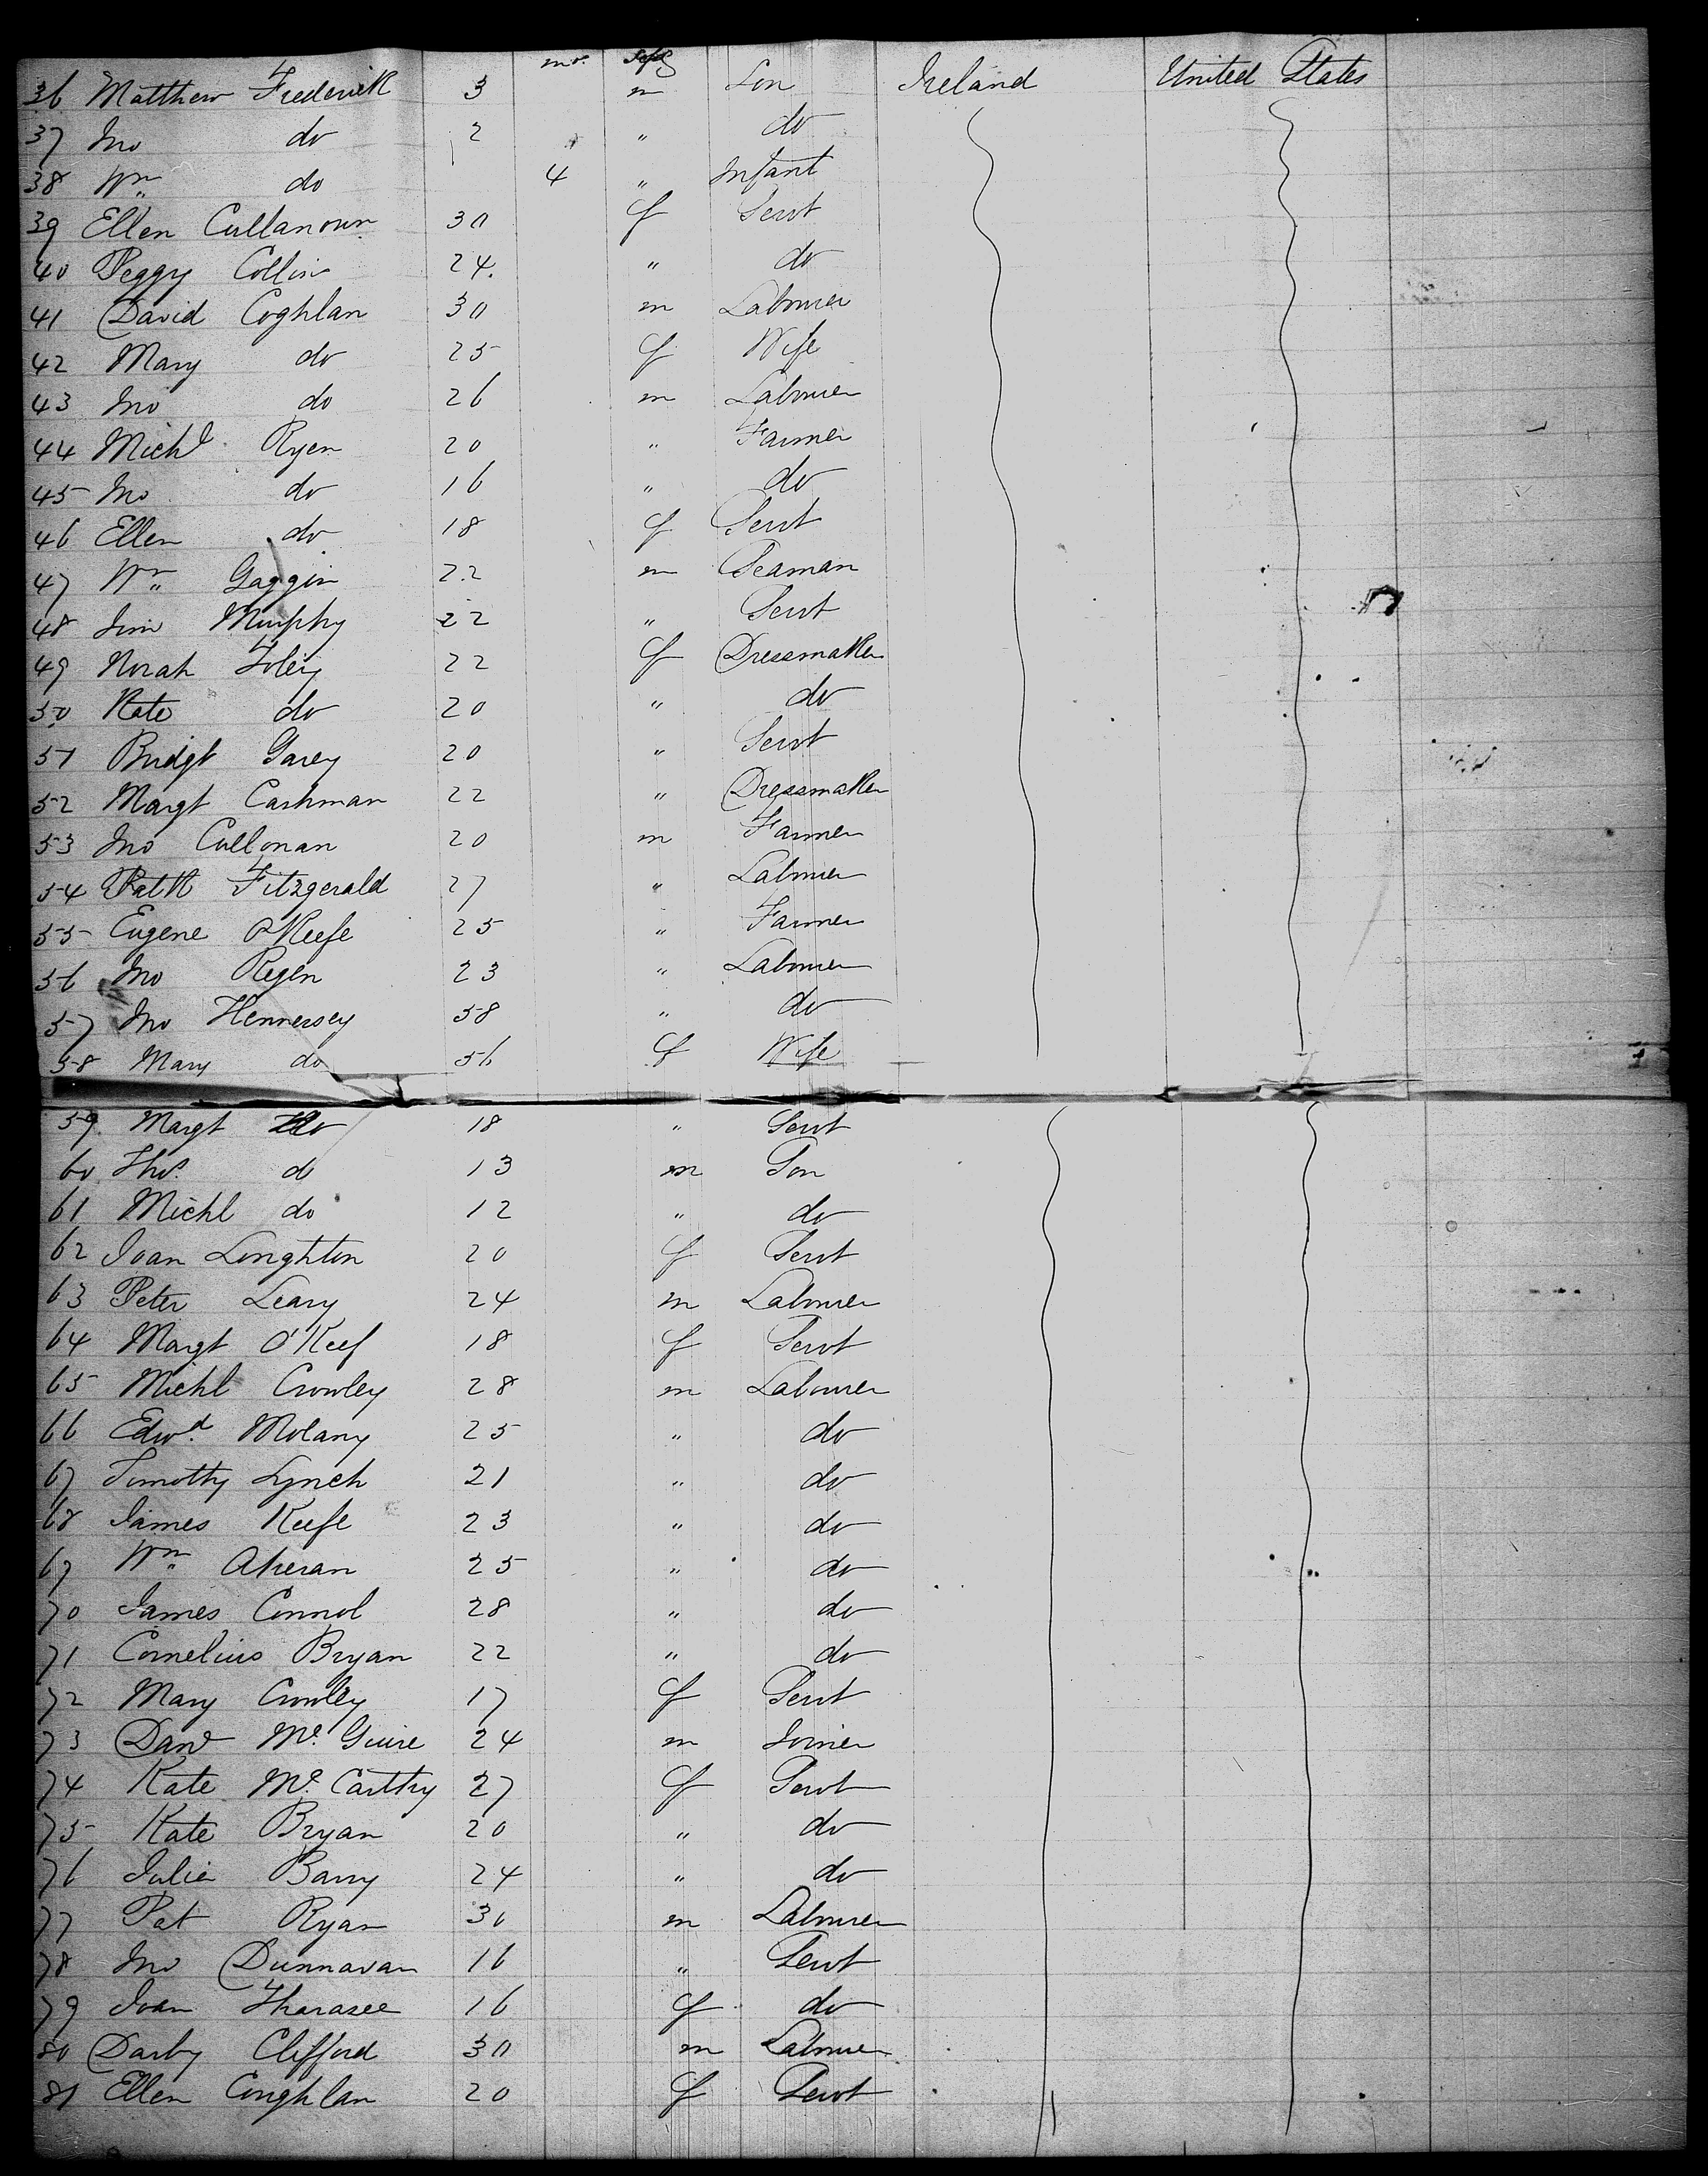 mo.
36 Matthew Frederick 3 m Son Ireland United States
37 Jno do 2 " do
38 Wm do 4 " Infant
39 Ellen Cullanown 30 f Servt
40 Peggy Collin 24. " do
41 David Coghlan 30 m Labourer
42 Mary do 25 f Wife
43 Jno do 26 m Labourer
44 Michl Ryen 20 " Farmer
45 Jno do 16 " do
46 Ellen do 18 f Servt
47 Wm Gaggin 22 m Seaman
48 Jim Murphy 22 " Servt
49 Norah Foley 22 f Dressmaker
50 Kate do 20 " do
51 Bridgt Garey 20 " Servt
52 Margt Cashman 22 " Dressmaker
53 Jno Cullonan 20 m Farmer
54 Patk Fitzgerald 27 " Labourer
55 Eugene O'Keefe 25 " Farmer
56 Jno Regen 23 " Labourer
57 Jno Hennersey 58 " do
58 Mary do 56 f Wife
59 Margt do 18 " Servt
60 Thos. do 13 m Son
61 Michl do 12 " do
62 Joan Longhton 20 f Servt
63 Peter Leary 24 m Labourer
64 Margt O'Keef 18 f Servt
65 Michl Crowley 28 m Labourer
66 Edwd. Molany 25 " do
67 Timothy Lynch 21 " do
68 James Keefe 23 " do
69 Wm Aheran 25 " do
70 James Connol 28 " do
71 Cornelius Bryan 22 " do
72 Mary Crowley 17 f Servt
73 Danl Mc. Guire 24 m Joiner
74 Kate Mc. Carthy 27 f Servt
75 Kate Bryan 20 " do
76 Julia Barry 24 " do
77 Pat Ryan 30 m Labourer
78 Jno Dunnavan 16 " Servt
79 Joan 16 f do
80 Darby Clifford 30 m Labourer
81 Ellen Coughlan 20 f Servt